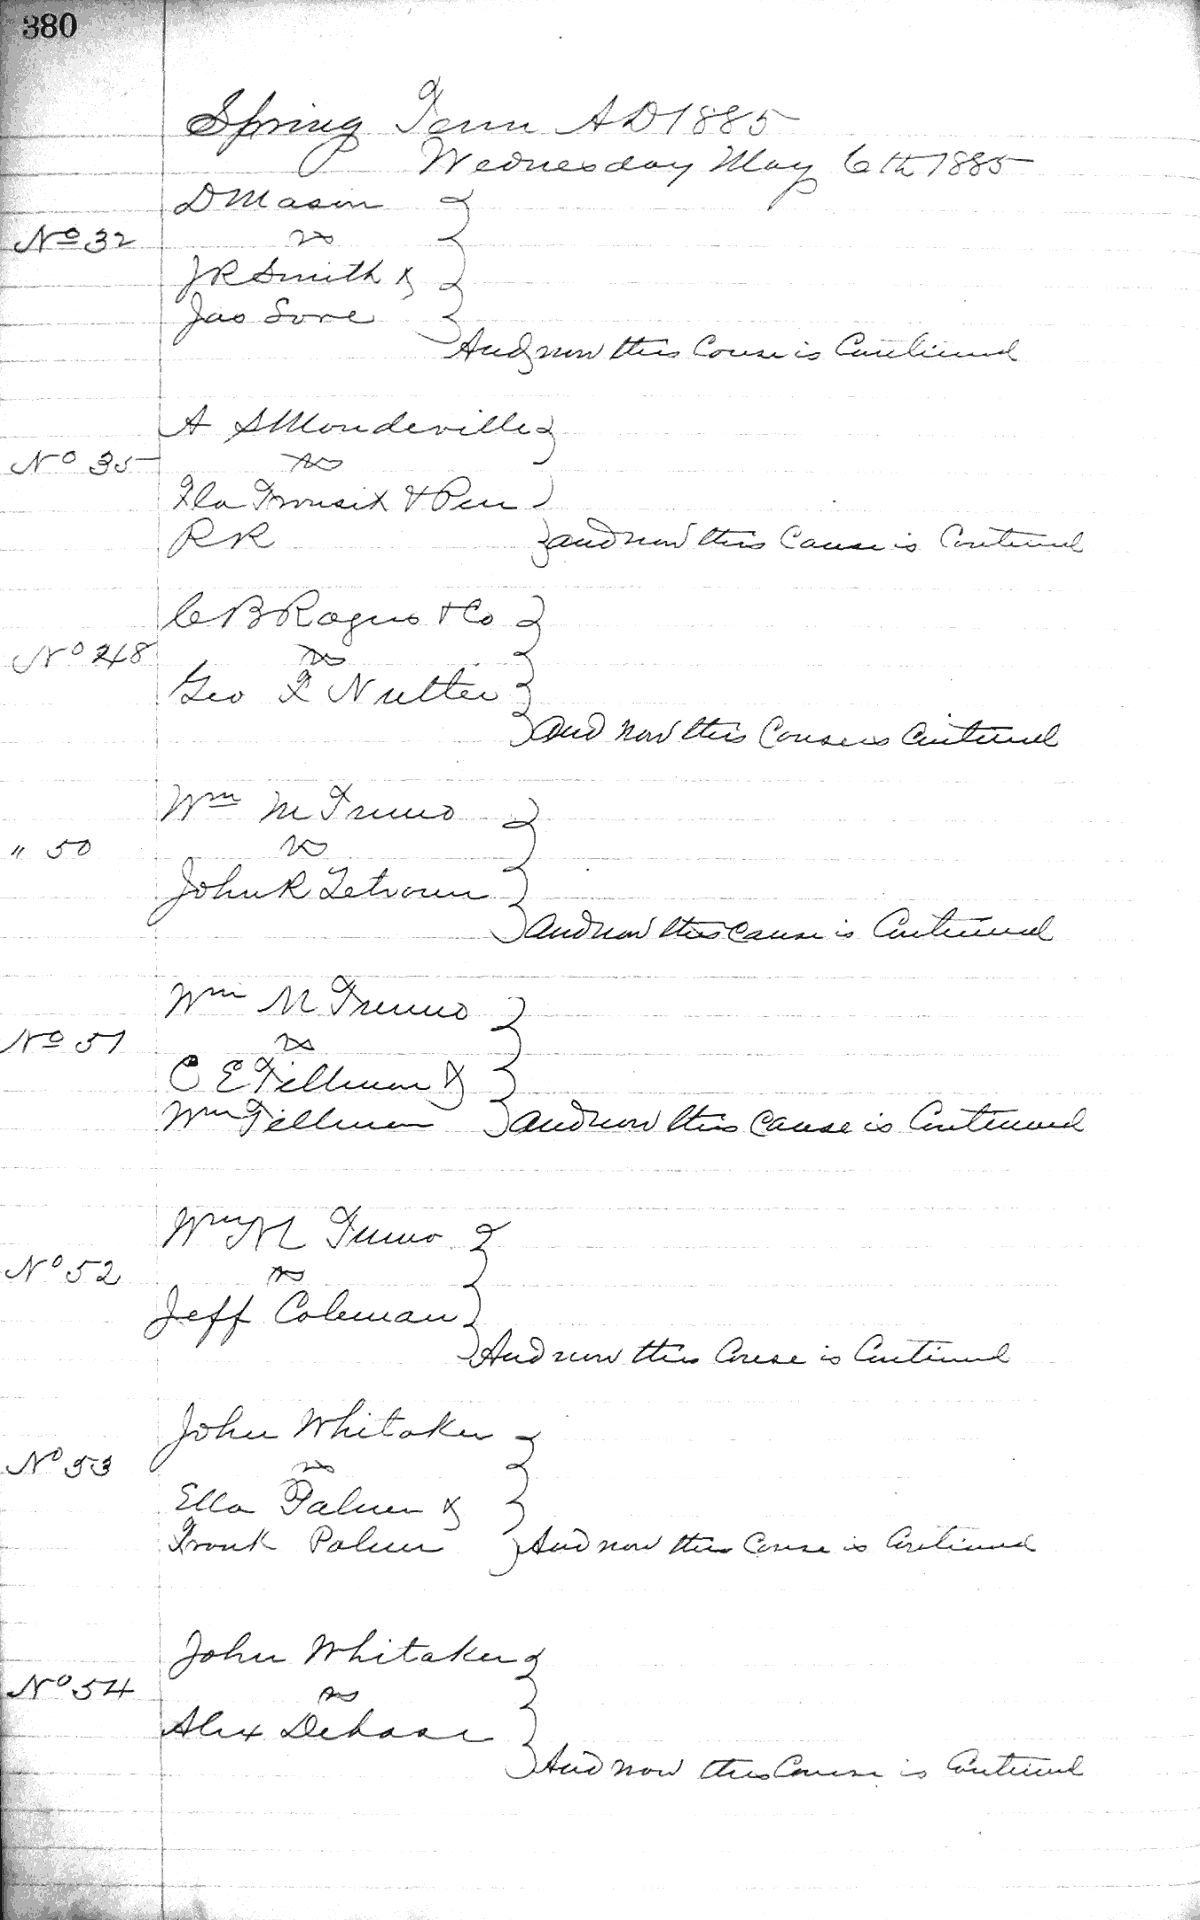 380
Spring Term AD 1885
Wednesday May 6th 1885
D Mason
No 32
vs
J R Smith &
Jas
And now this Cause is Continued
A S Mondeville
No 35
vs
Fla Transit & Pen
R R
and now this Cause is Continued
C B Rogers & Co
No 48
vs
Geo F Nutter
and now this Cause is Continued
Wm M
" 50
vs
John R
and now this Cause is Continued
Wm M
No 51
vs
C E Tillman &
Wm Tillman
and now this Cause is Continued
Wm M
No 52
vs
Jeff Coleman
And now this Cause is Continued
John Whitaker
No 53
vs
Ella Palmer &
Frank Palmer
And now this Cause is Continued
John Whitaker
No 54
vs
Alex
And now this Cause is Continued